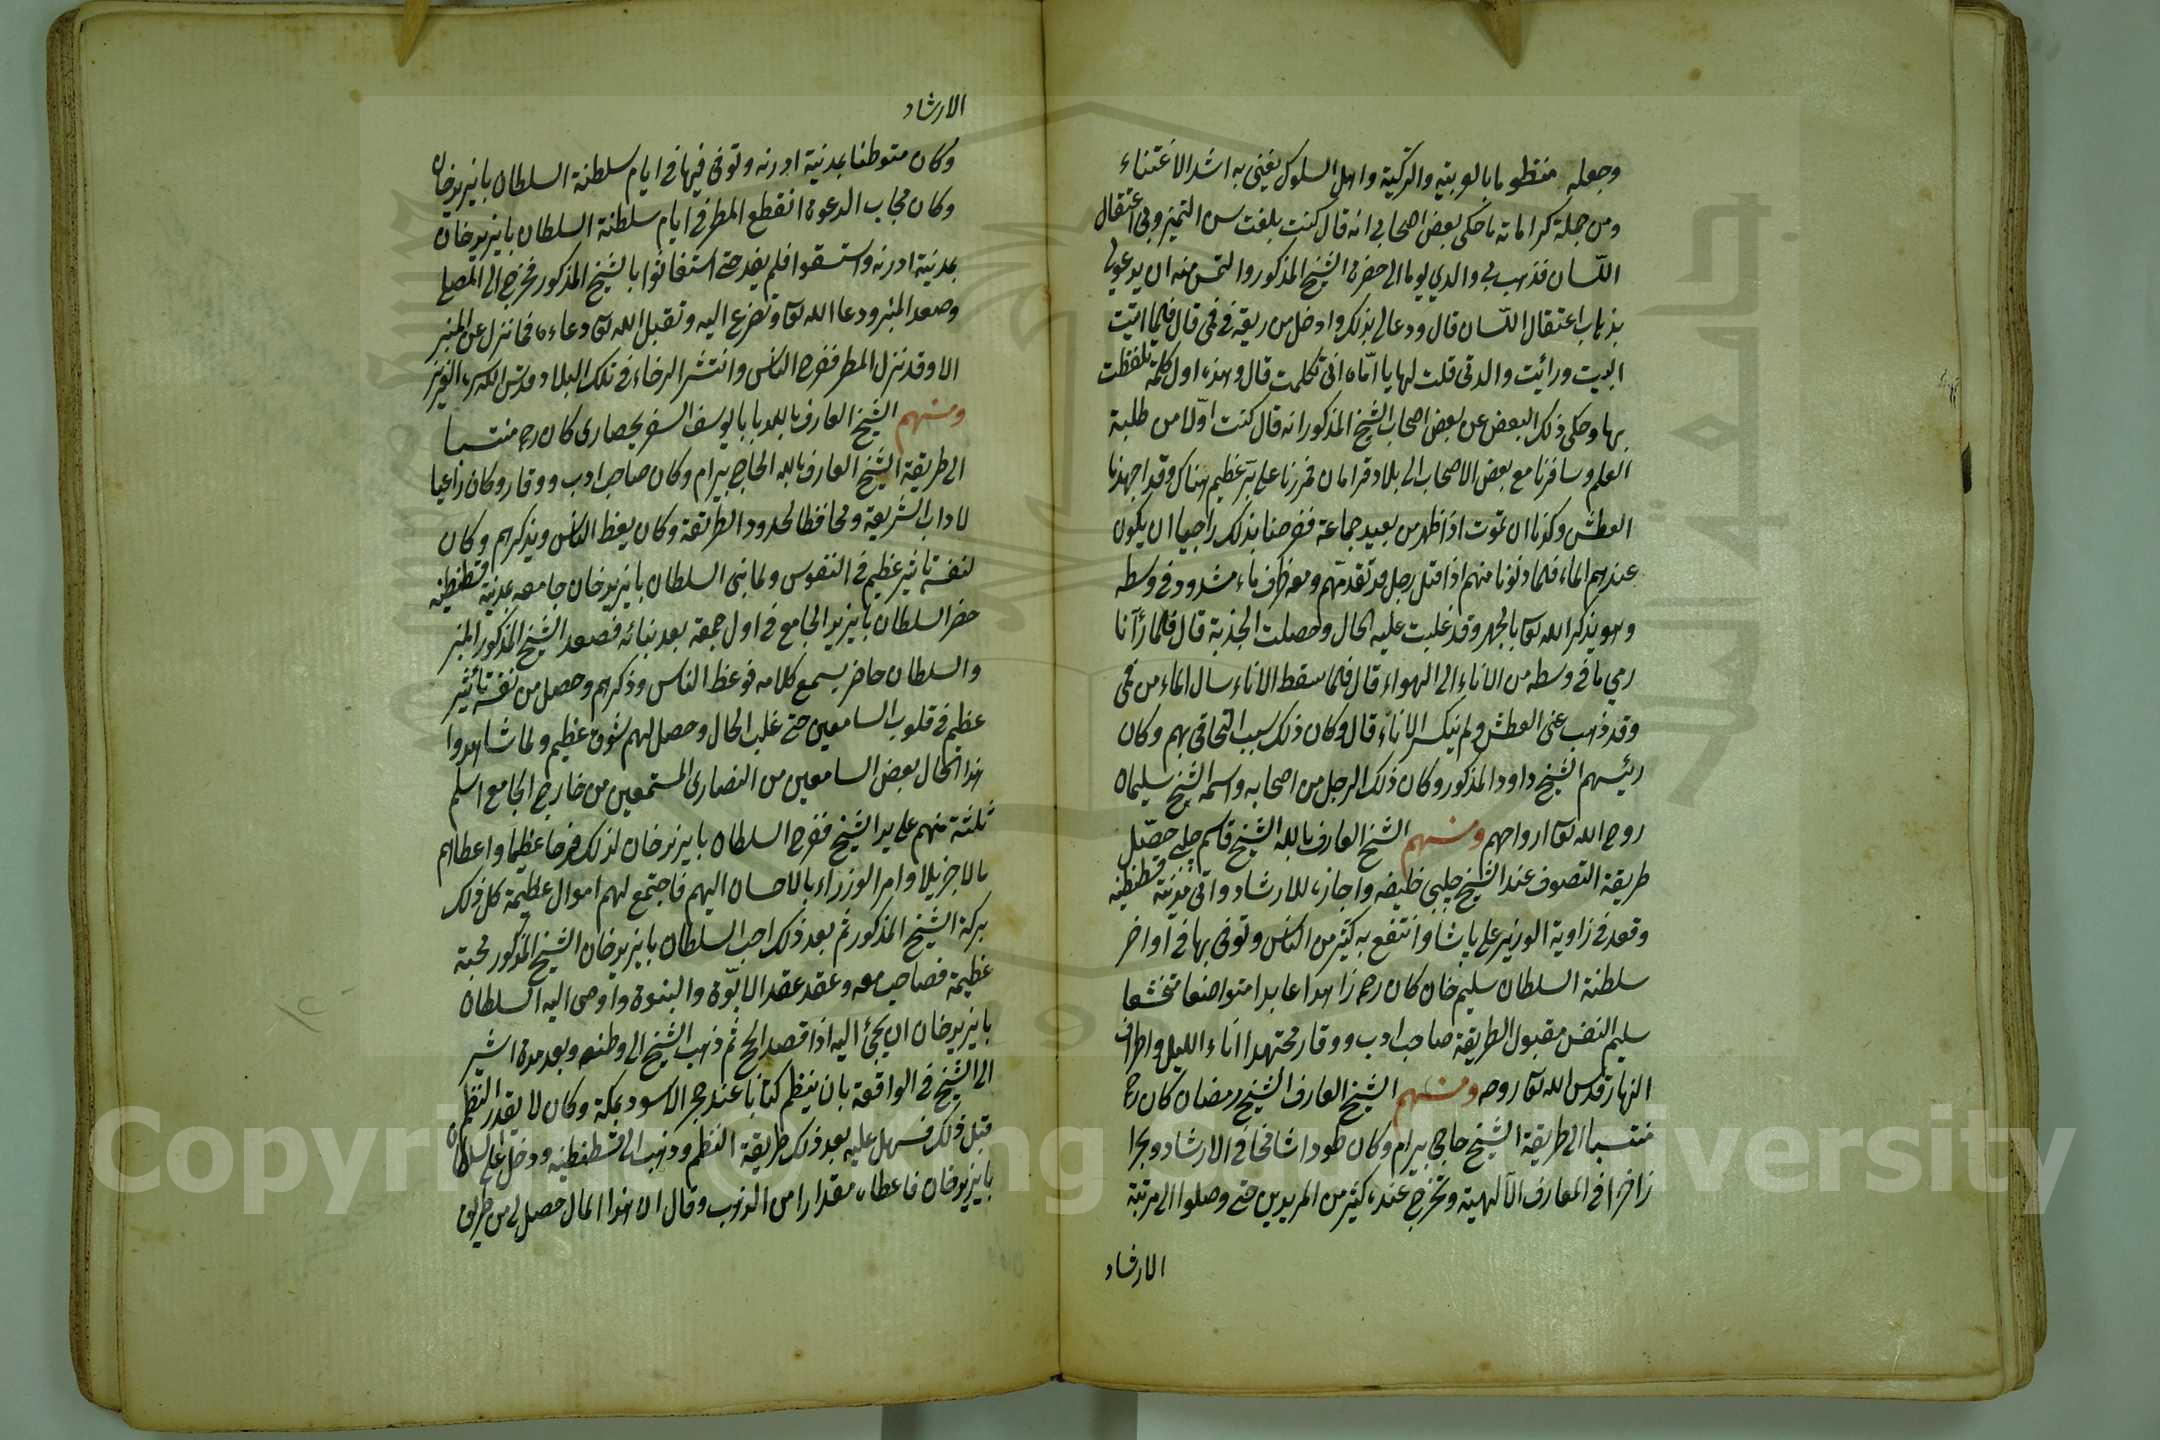 وجعله منظوما بالعربية والتركية واهل السلوك يعتنى به اشد الاعتناء
ومن جملة كراماته ما حكى بعض اصحابي انه قال كنت بلغت سن التميز وبى اعتقال
اللسان فذهب بى والدي يوما الى حضرة الشيخ المذكور والتمس منه ان يدعو لى
بذهاب اعتقال اللسان قال ودعا لى بذلك وادخل من ريقه فى فمى قال فلما اتيت
البيت ورائيت والدتى قلت لها يا اماه انى تكلمت قال وهذه اول كلمة تلفظت
بها وحكى ذلك البعض عن بعض اصحاب الشيخ المذكور انه قال كنت اولا من طلبة
العلم وسافرنا مع بعض الاصحاب الى بلاد قرامان فمررنا على بر عظيم هناك وقد اجهدنا
العطش وكدنا ان نموت اذ اظهر من بعيد جماعة ففرحنا بذلك راجيا ان يكون
عندهم الماء فلما دنونا منهم اذ اقبل رجل قد تقدمهم ومعه ظرف ماء مشدود فى وسطه
وهو يذكر الله تعا بالجهر وقد غلبت عليه الحال وحصلت الجذبة قال فلما رآنا
رمى ما فى وسطه من الاناء الى الهواء قال فلما سقط الاناء سال الماء من فمى
وقد ذهب عنى العطش ولم ينكسر الاناء قال وكان ذلك سبب التحاقى بهم وكان
رئيسهم الشيخ داود المذكور وكان ذلك الرجل من اصحابه واسمه الشيخ سليمان
روح الله تعا ارواحهم ومنهم الشيخ العارف بالله الشيخ قاسم چلبى حصل
طريقة التصوف عند الشيخ چلبى خليفه واجازه للارشاد واتى مدينة قسطنطنيه
وقعد فى زاوية الوزير على پاشا وانتفع به كثير من الناس وتوفى بها فى اواخر
سلطنة السلطان سليم خان كان رحمه زاهدا عابدا متواضعا متخشعا
سليم النفس مقبول الطريقة صاحب ادب ووقار مجتهدا اناء الليل واطراف
النهار قدس الله تعا روحه ومنهم الشيخ العارف الشيخ رمضان كان رحمه
منتسبا الى طريقة الشيخ حاجى بيرام وكان طودا شامخا فى الارشاد وبحرا
زاخرا فى المعارف الآلهية وتخرج عنده كثير من المريدين حتى وصلوا الى مرتبة
الارشاد
الارشاد
وكان متوطنا بمدينة ادرنه وتوفى فيها فى ايام سلطنة السلطان بايزيد خان
وكان مجاب الدعوة انقطع المطر فى ايام سلطنة السلطان بايزيد خان
بمدينة ادرنه واستسقوا فلم يفد حتى استغاثوا بالشيخ المذكور فخرج الى المصلى
وصعد المنبر ودعا الله تعا وتضرع اليه وتقبل الله تعا دعاءه فما نزل عن المنبر
الا وقد نزل المطر ففرح الناس وانتشر الرخاء فى تلك البلاد قدس الله سره العزيز
ومنهم الشيخ العارف بالله بابا يوسف السفريحصارى كان رحمه منتسبا
الى طريقة الشيخ العارف بالله الحاج بيرام وكان صاحب ادب ووقار وكان راعيا
لاداب الشريعة ومحافظا لحدود الطريقة وكان يعظ الناس ويذكرهم وكان
لنفسه تاثير عظيم فى النفوس ولما بنى السلطان بايزيد خان جامعه بمدينة قسطنطنيه
حضر السلطان بايزيد الجامع فى اول جمعة بعد بنائه فصعد الشيخ المذكور المنبر
والسلطان حاضر يسمع كلامه فوعظ الناس وذكرهم وحصل من نفسه تاثير
عظيم فى قلوب السامعين حتى غلب الحال وحصل لهم شوق عظيم ولما شاهدوا
هذا الحال بعض السامعين من النصارى المستمعين من خارج الجامع اسلم
ثلثة منهم على يد الشيخ ففرح السلطان بايزيد خان لذلك فرحا عظيما واعطاهم
مالا جزيلا وامر الوزراء بالاحسان اليهم فاجتمع لهم اموال عظيمة كل ذلك
ببركة الشيخ المذكور ثم بعد ذلك احب السلطان بايزيد خان الشيخ المذكور محبة
عظيمة فصاحب معه وعقد عقد الابوة والبنوة واوصى اليه السلطان
بايزيد خان ان يجئ اليه اذا قصد الحج ثم ذهب الشيخ الى وطنه وبعد مدة اشير
الى الشيخ فى الواقعة بان ينظم كتابا عند حجر الاسود بمكة وكان لا يقدر النظم
قبل ذلك فسهل عليه بعد ذلك طريقة النظم وذهب الى قسطنطنيه ودخل على السلطان
بايزيد خان فاعطاه مقدارا من الذهب وقال ان هذا المال حصل لى من طريق
Copyright © King Saud University